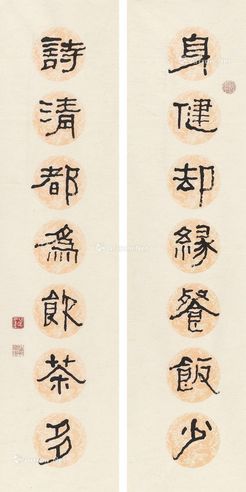 身健却緣餐飯少
詩清都為飲茶多